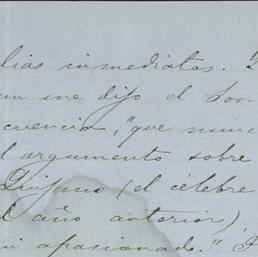 lias inmediatos.
an me dijo el Sor.
cuencia, "que nunc
l argumento sobre
Quijano (el célebre
l año anterior)
ui apasionado."